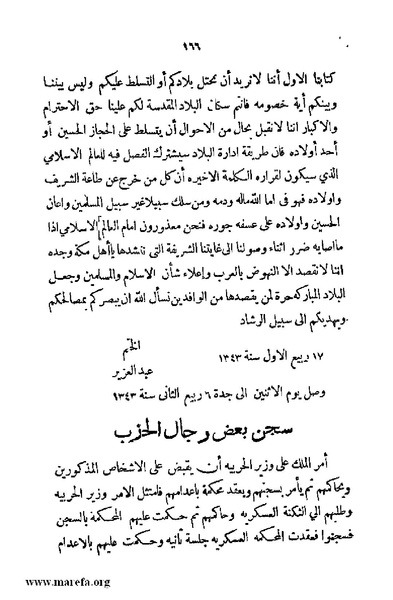 ١٦٦
كتابنا الاول أننا لا نريد أن نحتل بلادكم أو التسلط عليكم وليس بيننا
وبينكم أية خصومه فانتم سكان البلاد المقدسة لكم علينا حق الاحترام
والاكبار اننا لا نقبل بحال من الاحوال أن يتسلط على الحجاز الحسين أو
أحد أولاده فان طريقة ادارة البلاد سيشترك الفصل فيه للعالم الاسلامي
الذي سيكون لقراره الكلمة الاخيره أن كل من خرج عن طاعة الشريف
واولاده فهو فى اما الله ماله ودمه ومن سلك سبيلا غير سبيل المسلمين واعان
الحسين واولاده على عسفه جوره فنحن معذورون امام العالم الاسلامي اذا
ما اصابه ضرر اثناء وصولنا الى غايتنا الشريفة التى ننشدها يا أهل مكة وجده
اننا لا نقصد الا النهوض بالعرب وإعلاء شأن الاسلام والمسلمين وجعل
البلاد المباركه حرة لمن يقصدها من الوافدين نسأل الله ان يبصركم بمصالحكم
ويهديكم الى سبيل الرشاد
١٧ ربيع الاول سنة ١٣٤٣
الختم
عبد العزيز
وصل يوم الاثنين الى جدة ٦ ربيع الثانى سنة ١٣٤٣
سجن بعض رجال الحزب
أمر الملك على وزير الحربيه أن يقبض على الاشخاص المذكورين
ويحاكمهم ثم يأمر بسجنهم ويعقد محكمة باعدامهم فامتثل الامر وزير الحربيه
وطلبهم الي الثكنة العسكريه وحاكمهم ثم حكمت عليهم المحكمة بالسجن
فسجنوا فعقدت المحكمه العسكريه جلسة ثانيه وحكمت عليهم بالاعدام
www.marefa.org